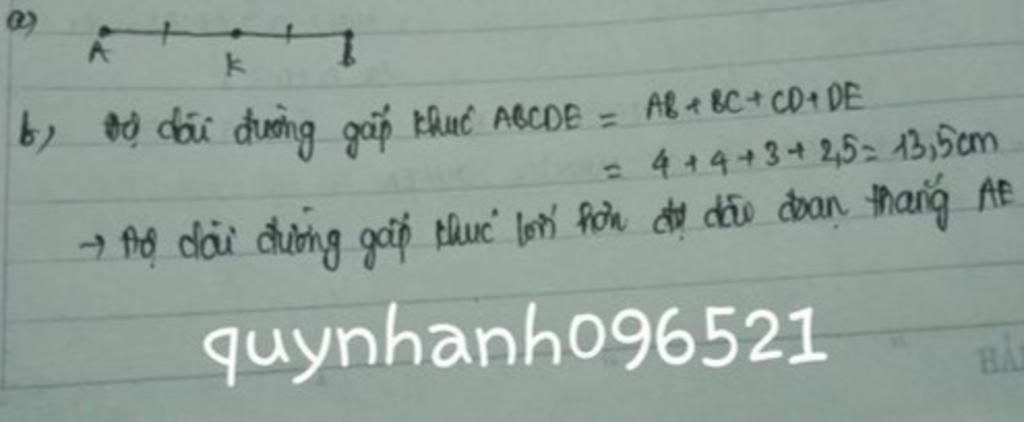 a)
A K B
b) Độ dài đường gấp khúc ABCDE = AB + BC + CD + DE
= 4 + 4 + 3 + 2,5 = 13,5cm
→ Độ dài đường gấp khúc lớn hơn độ dài đoạn thẳng AE
quynhanh096521